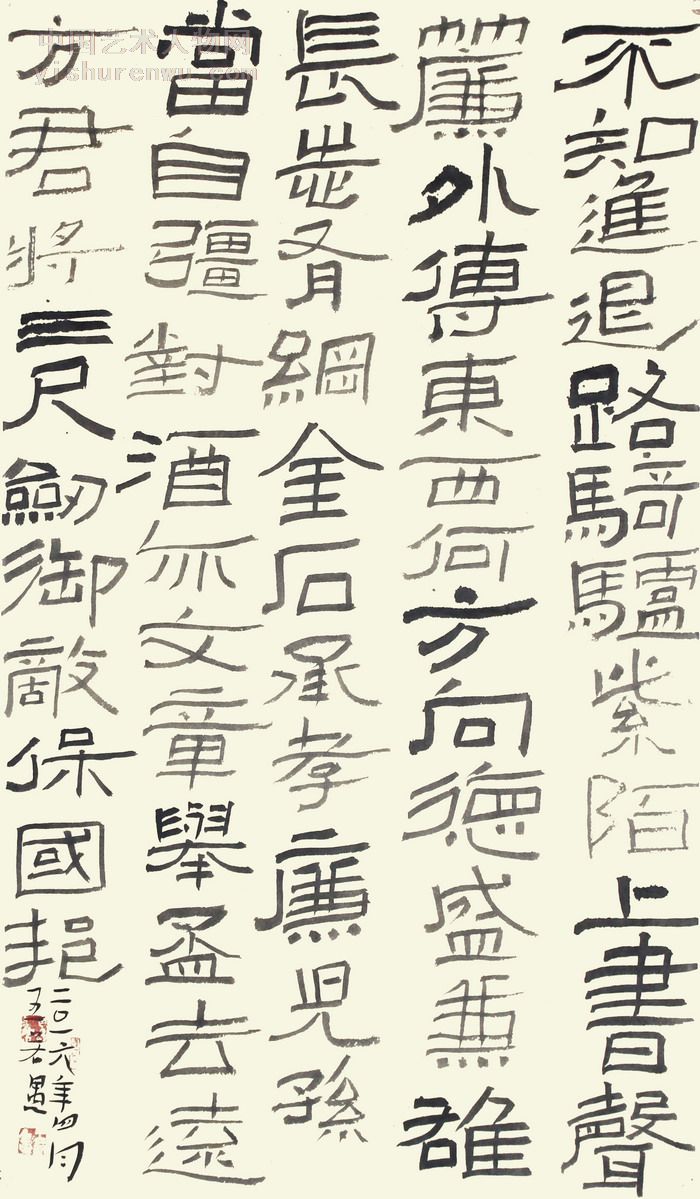 不知進退路騎驢紫陌上書聲
簾外傳東西何方向德盛兼雄
長有綱金石承孝廉兒孫
當自彊對酒亦文章舉盃去遠
方君將三尺劍御敵保國邦
二〇一六年四月
王若愚
中国艺术人物网
yishurenwu.com